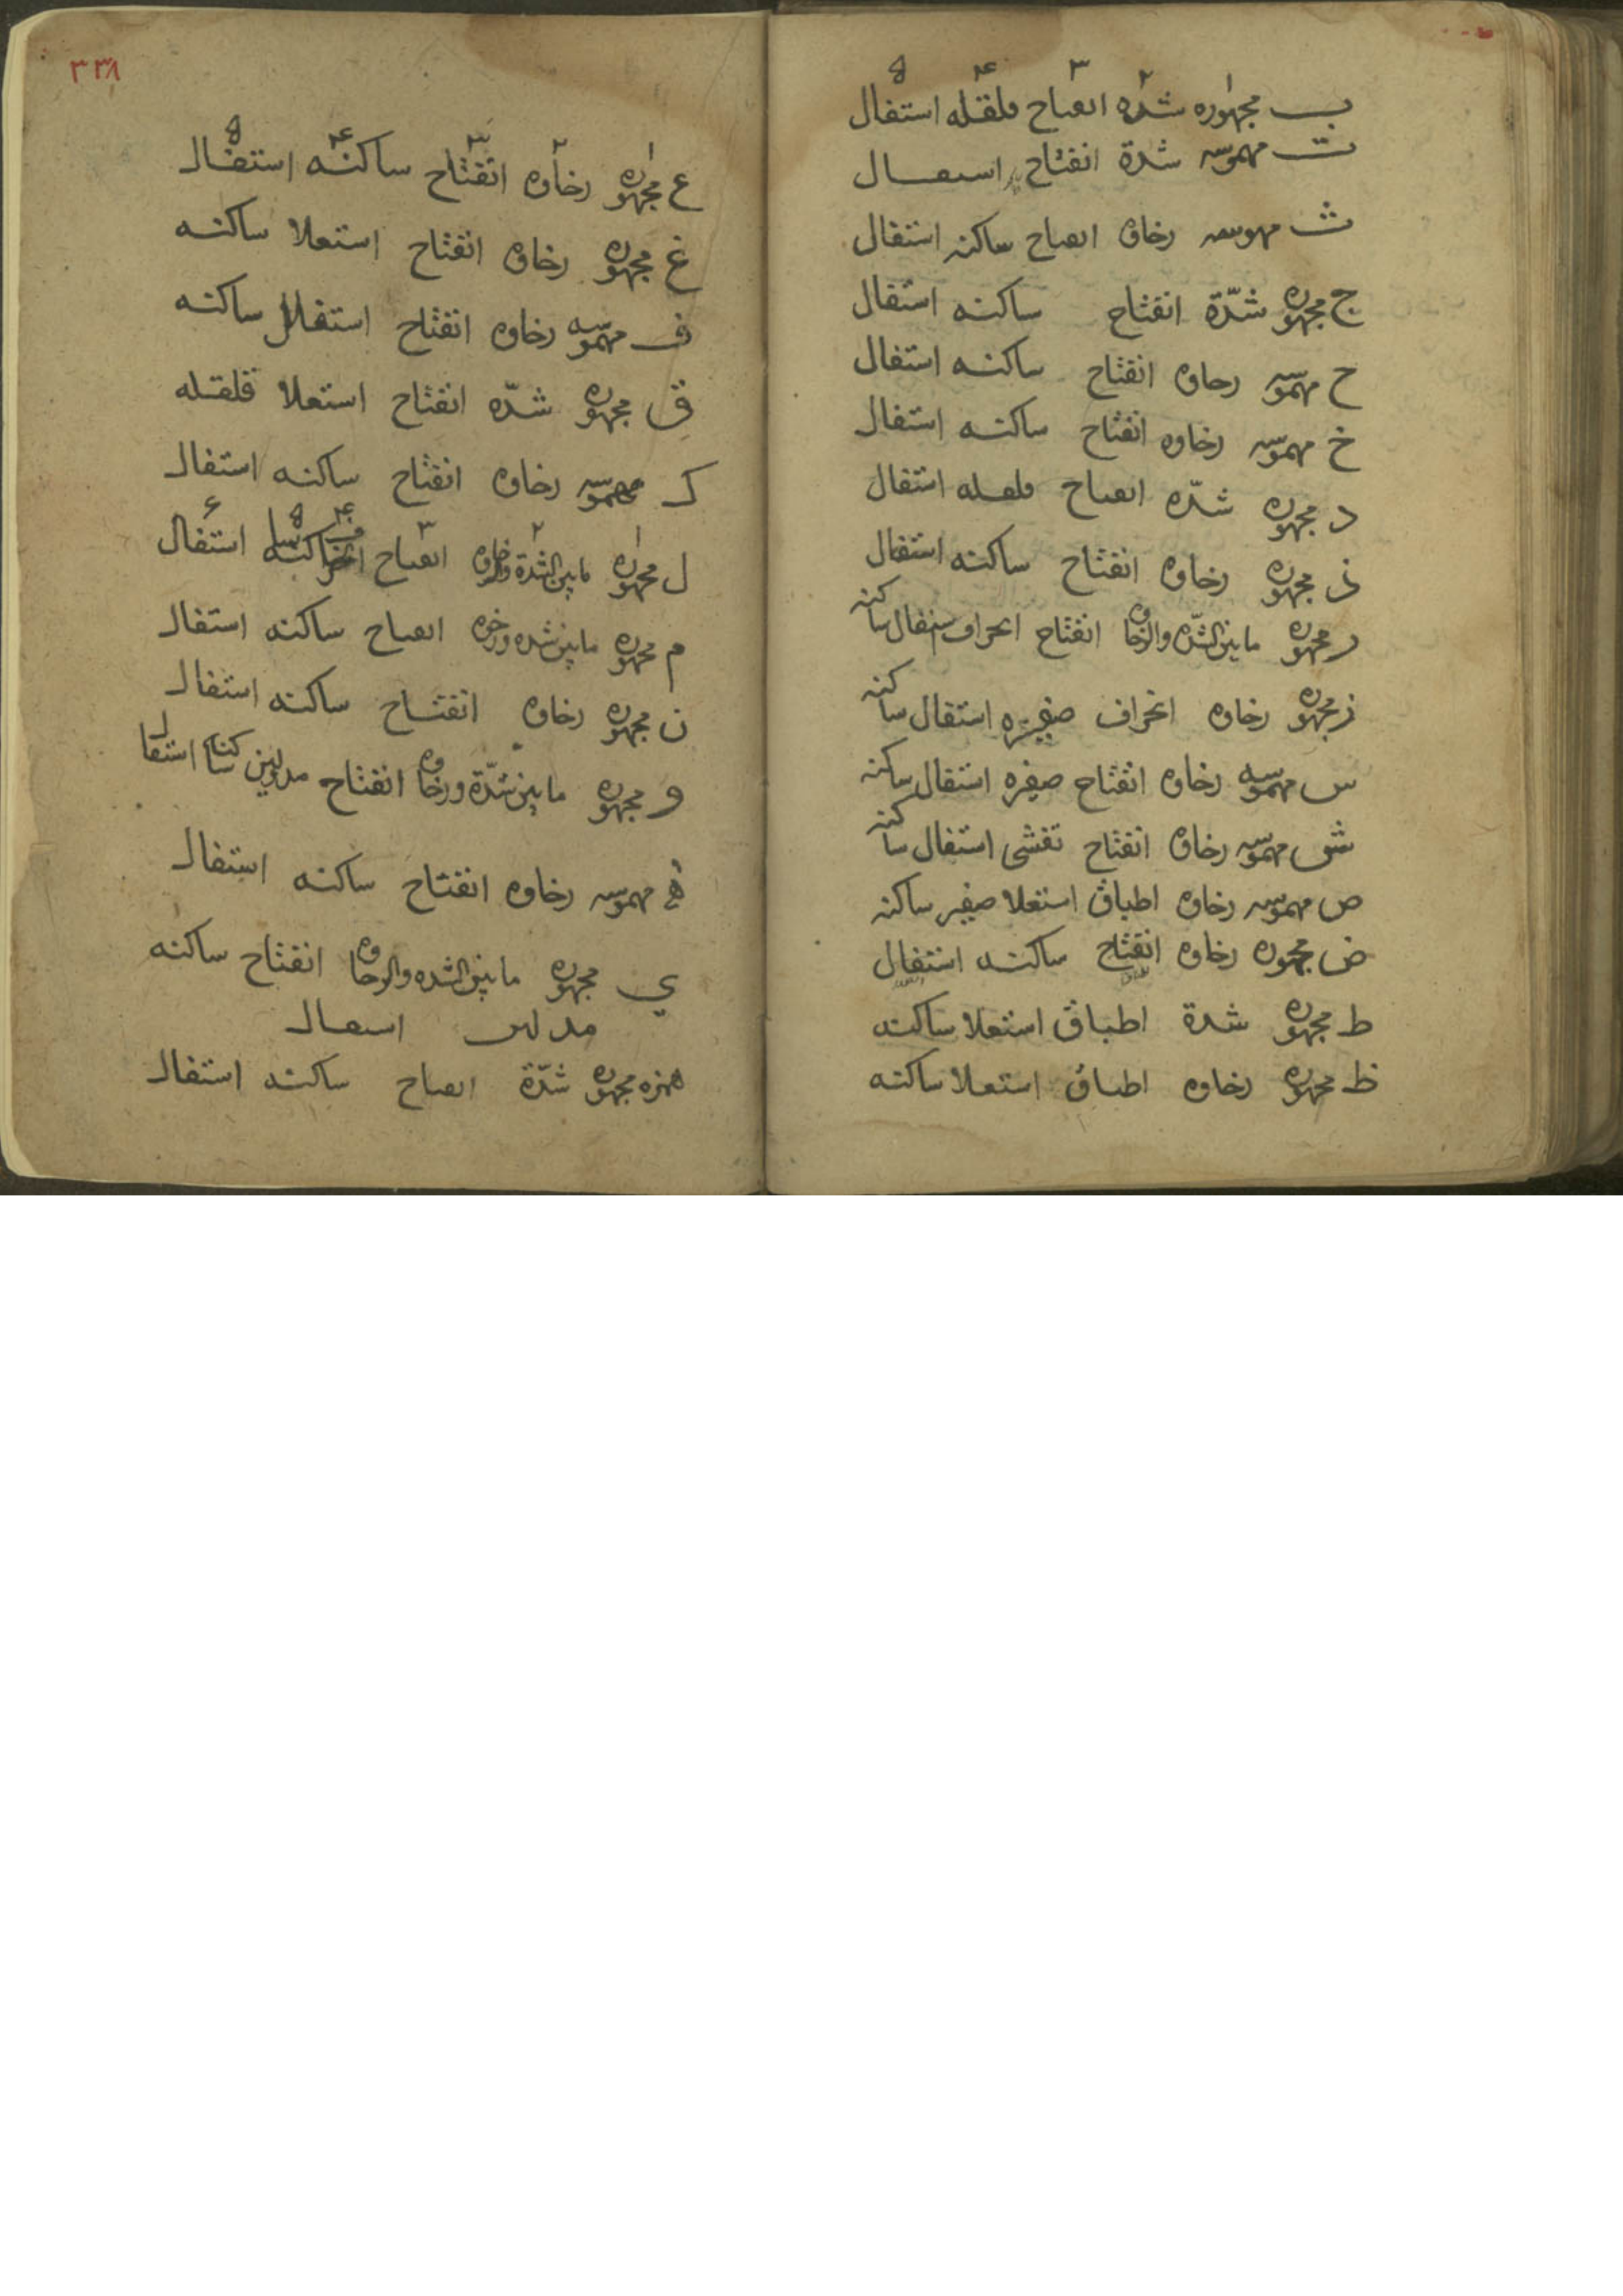 ۱ ۲ ۳ ۴ ۵
ب مجهوره شده انفتاح قلقله استفال
ت مهموسه شدة انفتاح استفال
ث مهموسه رخاوه انفتاح ساكنه استفال
ج مجهوره شدّة انفتاح ساكنه استفال
ح مهموسه رخاوه انفتاح ساكنه استفال
خ مهموسه رخاوه انفتاح ساكنه استفال
د مجهوره شدّه انفتاح قلقله استفال
ذ مجهوره رخاوه انفتاح ساكنه استفال
ر مجهوره مابين الشدّه والرخاوه انفتاح انحراف استفال ساكنه
ز مجهوره رخاوه انحراف صفيره استفال ساكنه
س مهموسه رخاوه انفتاح صفيره استفال ساكنه
ش مهموسه رخاوه انفتاح تفشى استفال ساكنه
ص مهموسه رخاوه اطباق استعلا صفير ساكنه
ض مجهوره رخاوه انفتاح ساكنه استفال
ط مجهوره شدة اطباق استعلا ساكنه
ظ مجهوره رخاوه اطباق استعلا ساكنه
۳۳۸
۱ ۲ ۳ ۴ ۵
ع مجهوره رخاوه انفتاح ساكنه استفال
غ مجهوره رخاوه انفتاح استعلا ساكنه
ف مهموسه رخاوه انفتاح استفال ساكنه
ق مجهوره شدّه انفتاح استعلا قلقله
ك مهموسه رخاوه انفتاح ساكنه استفال
۱ ۲ ۳ ۴ ۵ ۶
ل مجهوره مابين الشدة والرخاوه انفتاح انحراف ساكنه استفال
م مجهوره مابين شده ورخوه انفتاح ساكنه استفال
ن مجهوره رخاوه انفتاح ساكنه استفال
و مجهوره مابين شدّة ورخاوه انفتاح مد لين ساكنه استفال
ه مهموسه رخاوه انفتاح ساكنه استفال
ي مجهوره مابين الشده والرخاوه انفتاح ساكنه
مد لين استفال
همزه مجهوره شدّة انفتاح ساكنه استفال